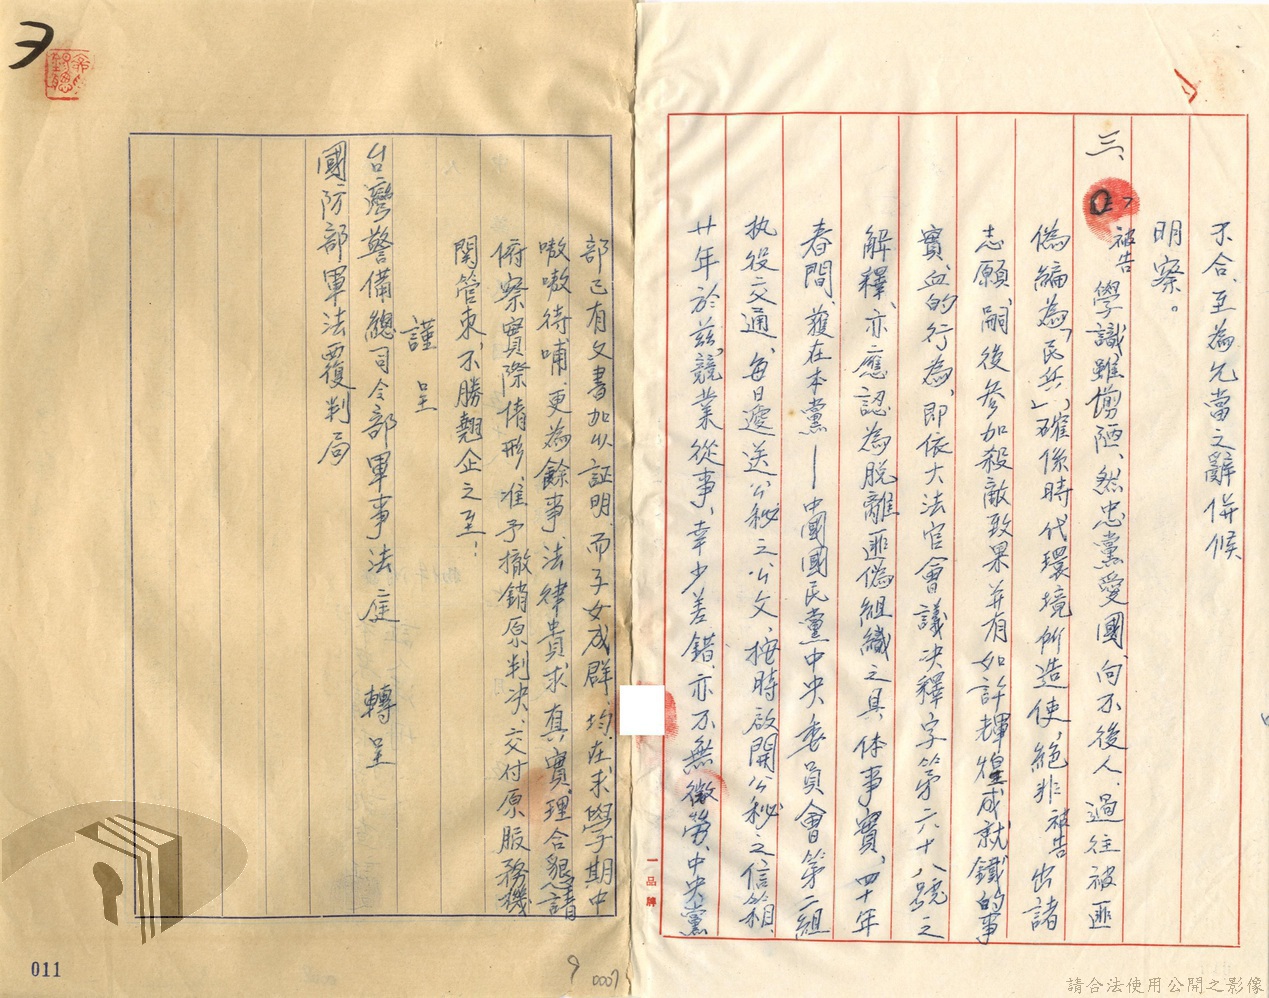 不合、至為允當之辭、併候
明察。
三、被告學識雖愴陋、然忠黨愛國、向不後人、過往被匪
偽編為「民兵」確係時代環境所造使、絕非被告出諸
志願、嗣後參加殺敵致果并有如許輝煌成就鐵的事
實、血的行為、即依大法官會議決釋字第六十八號之
解釋、亦應認為脫離匪偽組織之具体事實、四十年
春間、獲在本黨—中國國民黨中央委員會第二組
执役交通、每日遞送公秘之公文、按時啟開公秘之信箱、
廿年於茲、競業從事、幸少差錯、亦不無微勞、中央黨
部已有文書加以証明、而子女成群、均在求學期中
嗷嗷待哺、更為餘事、法律貴求真實、理合懇請
俯察實際情形、准予撤銷原判决、交付原服務機
関管束、不勝翹企之至！
謹呈
台灣警備總司令部軍事法庭 轉呈
國防部軍法覆判局
一品牌
011
9
0007
請合法使用公開之影像